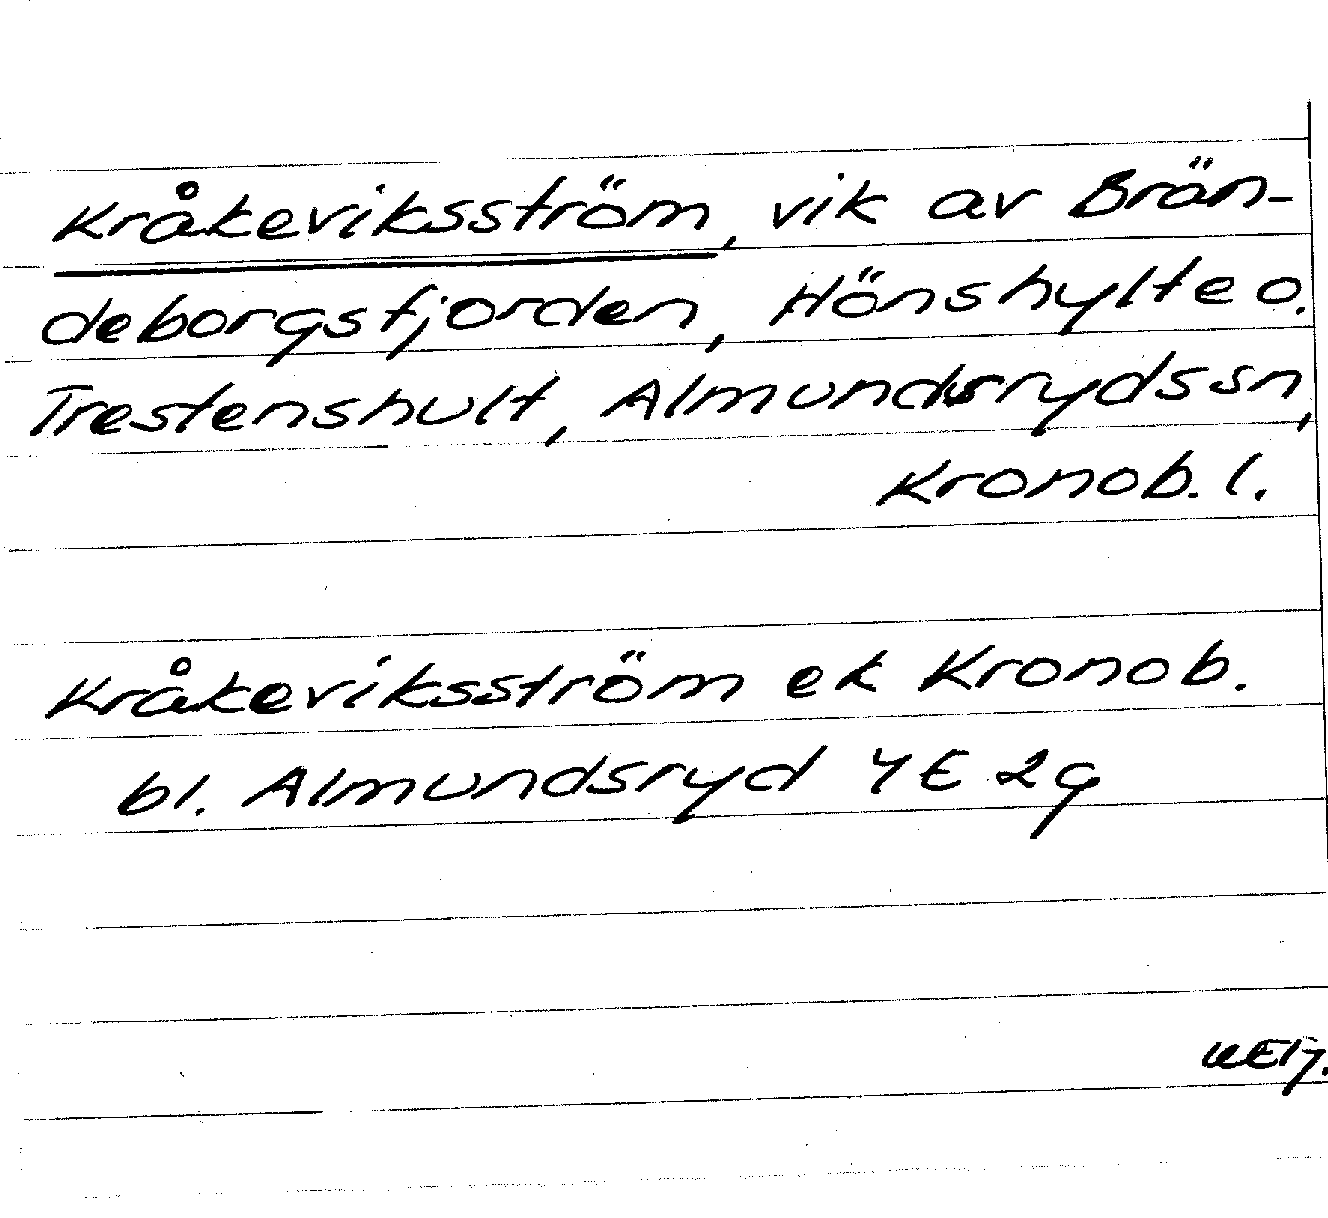 Kråkeviksström, vik av Brän-
deborgsfjorden, Hönshylte o.
Trestenshult, Almundsrydssn,
Kronob. l.
Kråkeviksström ek Kronob.
bl. Almundsryd 4E 2g